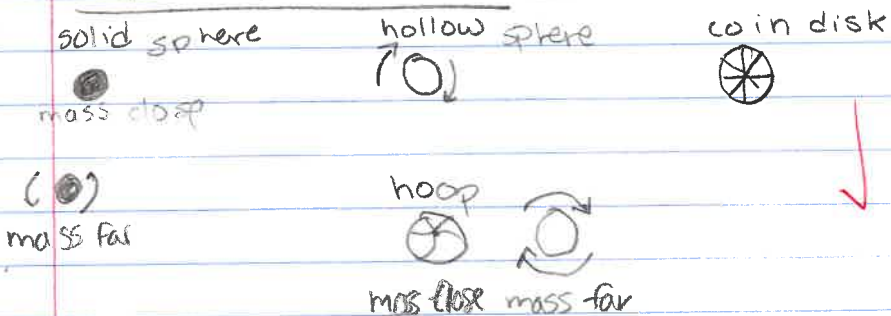 solid sphere hollow sphere coin disk
mass close
hoop
mass far
mass close mass far